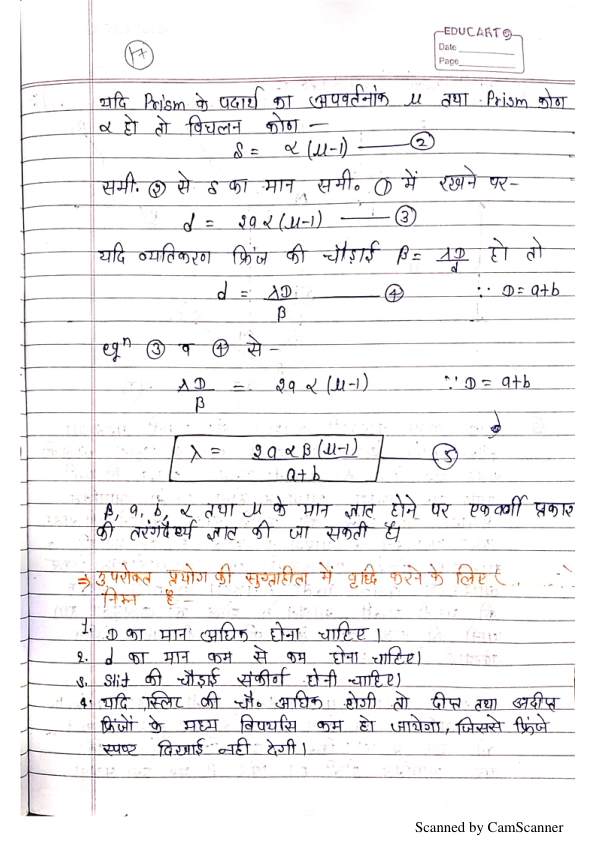 EDUCART
Date
Page
17
यदि Prism के पदार्थ का अपवर्तनांक μ तथा Prism कोण
α हो तो विचलन कोण —
δ = α (μ-1) ——— ②
समी. ② से δ का मान समी. ① में रखने पर-
d = 2aα(μ-1) ——— ③
यदि व्यतिकरण फ्रिंज की चौड़ाई β = λD/d हो तो
d = λD/β ——— ④ ∵ D = a+b
eqn ③ व ④ से -
λD/β = 2aα(μ-1) ∵ D = a+b
λ = 2aαβ(μ-1)/a+b ——— ⑤
β, a, b, α तथा μ के मान ज्ञात होने पर एकवर्णी प्रकाश
की तरंगदैर्ध्य ज्ञात की जा सकती है।
⇒ उपरोक्त प्रयोग की सुग्राहीता में वृद्धि करने के लिए
निम्न है -
1. D का मान अधिक होना चाहिए।
2. d का मान कम से कम होना चाहिए।
3. Slit की चौड़ाई संकीर्ण होनी चाहिए।
4. यदि स्लिट की चौ० अधिक होगी तो दीप्त तथा अदीप्त
फ्रिंजों के मध्य विपर्यास कम हो जायेगा, जिससे फ्रिंजे
स्पष्ट दिखाई नही देगी।
Scanned by CamScanner